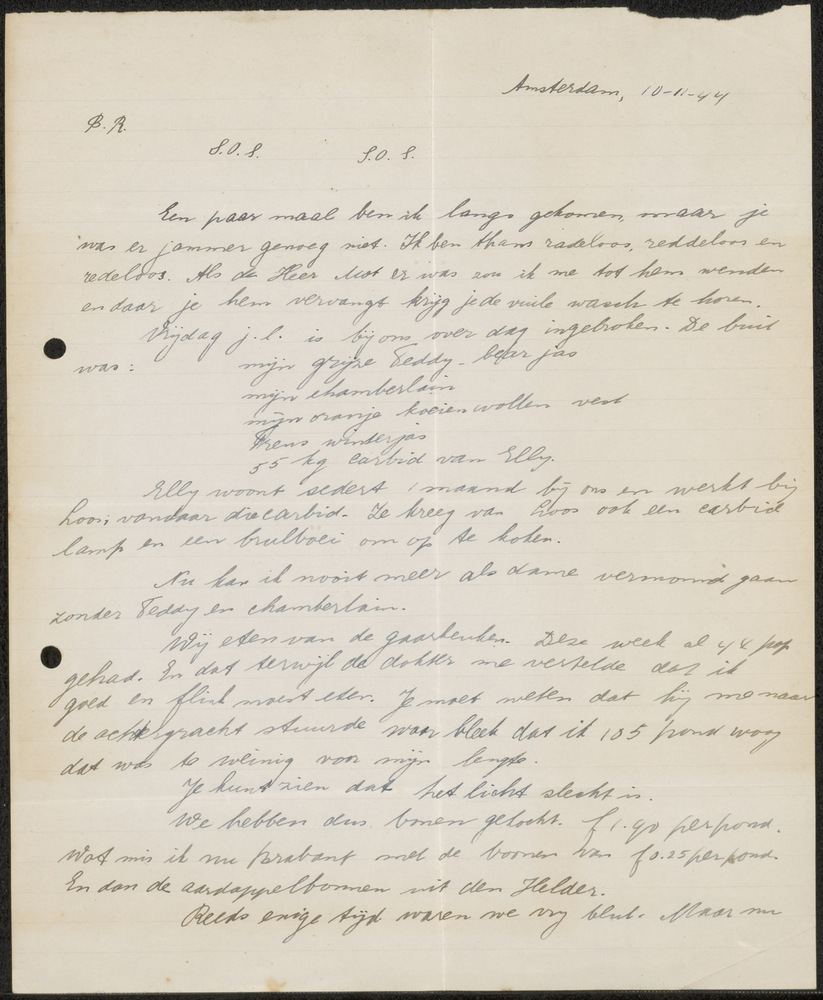 Amsterdam, 10-11-44
B.R.
S.O.S. S.O.S.
Een paar maal ben ik langs gekomen, maar je
was er jammer genoeg niet. Ik ben thans radeloos, reddeloos en
redeloos. Als de Heer Mot er was zou ik me tot hem wenden
en daar je hem vervangt krijg je de vuile wasch te horen.
Vrijdag j.l. is bij ons over dag ingebroken. De buit
was: mijn grijze Teddy-bear jas
mijn chamberlain
mijn oranje koeienwollen vest
Trens winterjas
55 kg carbid van Elly.
Elly woont sedert 1 maand bij ons en werkt bij
Loos; vandaar die carbid. Ze kreeg van Loos ook een carbid
lamp en een brulboei om op te koken.
Nu kan ik nooit meer als dame vermomd gaan
zonder Teddy en chamberlain.
Wij eten van de gaarkeuken. Deze week al 4x pap
gehad. En dat terwijl de dokter me vertelde dat ik
goed en flink moest eten. Je moet weten dat hij me naar
de achtergracht stuurde waar bleek dat ik 105 pond woog
dat was te weinig voor mijn lengte.
Je kunt zien dat het licht slecht is.
We hebben dus bonen gekocht. f 1.90 per pond.
Wat mis ik nu Brabant met de boonen van f 0.25 per pond.
En dan de aardappelbonnen uit den Helder.
Reeds enige tijd waren we vrij blut. Maar nu